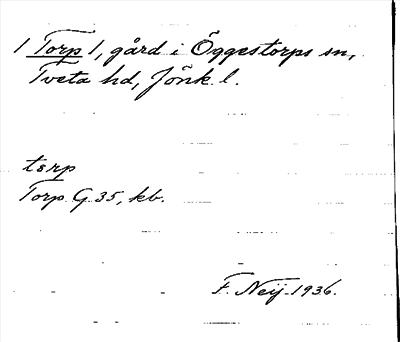 1 Torp 1, gård i Öggestorps sn,
Tveta hd, Jönk. l.
tɛrp
Torp G 35, kb.
F. Neij. 1936.